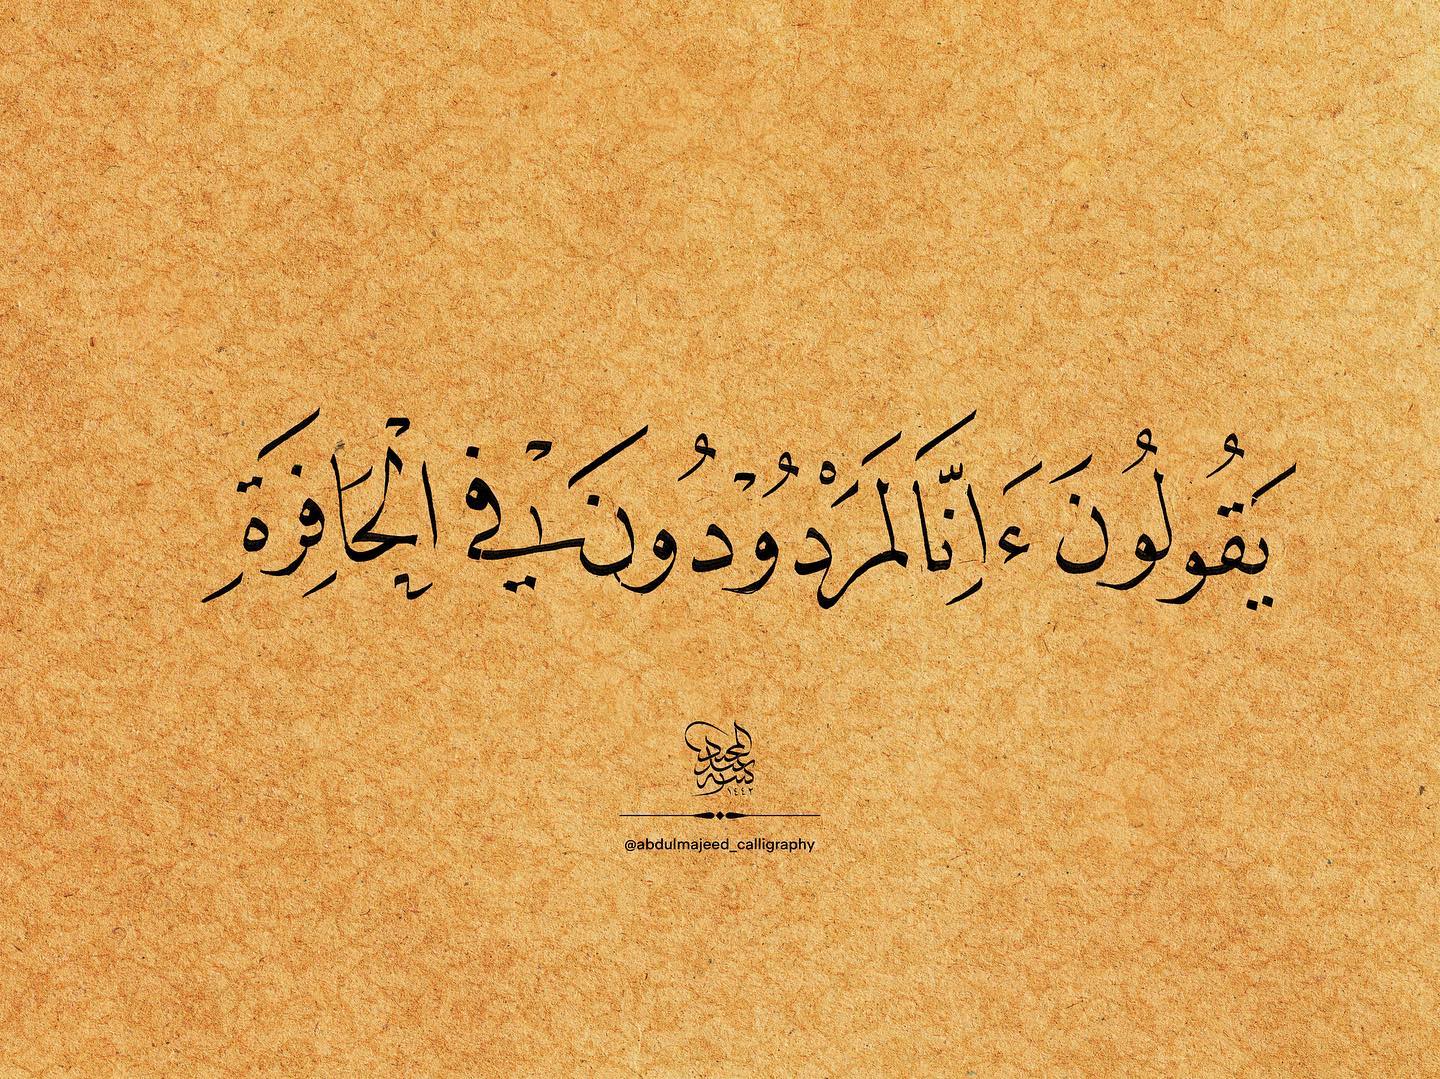 يَقُولُونَ ءَاِنَّا لَمَرْدُودُونَ فِي الْحَافِرَةِ
عبد المجيد
١٤٤٢
@abdulmajeed_calligraphy